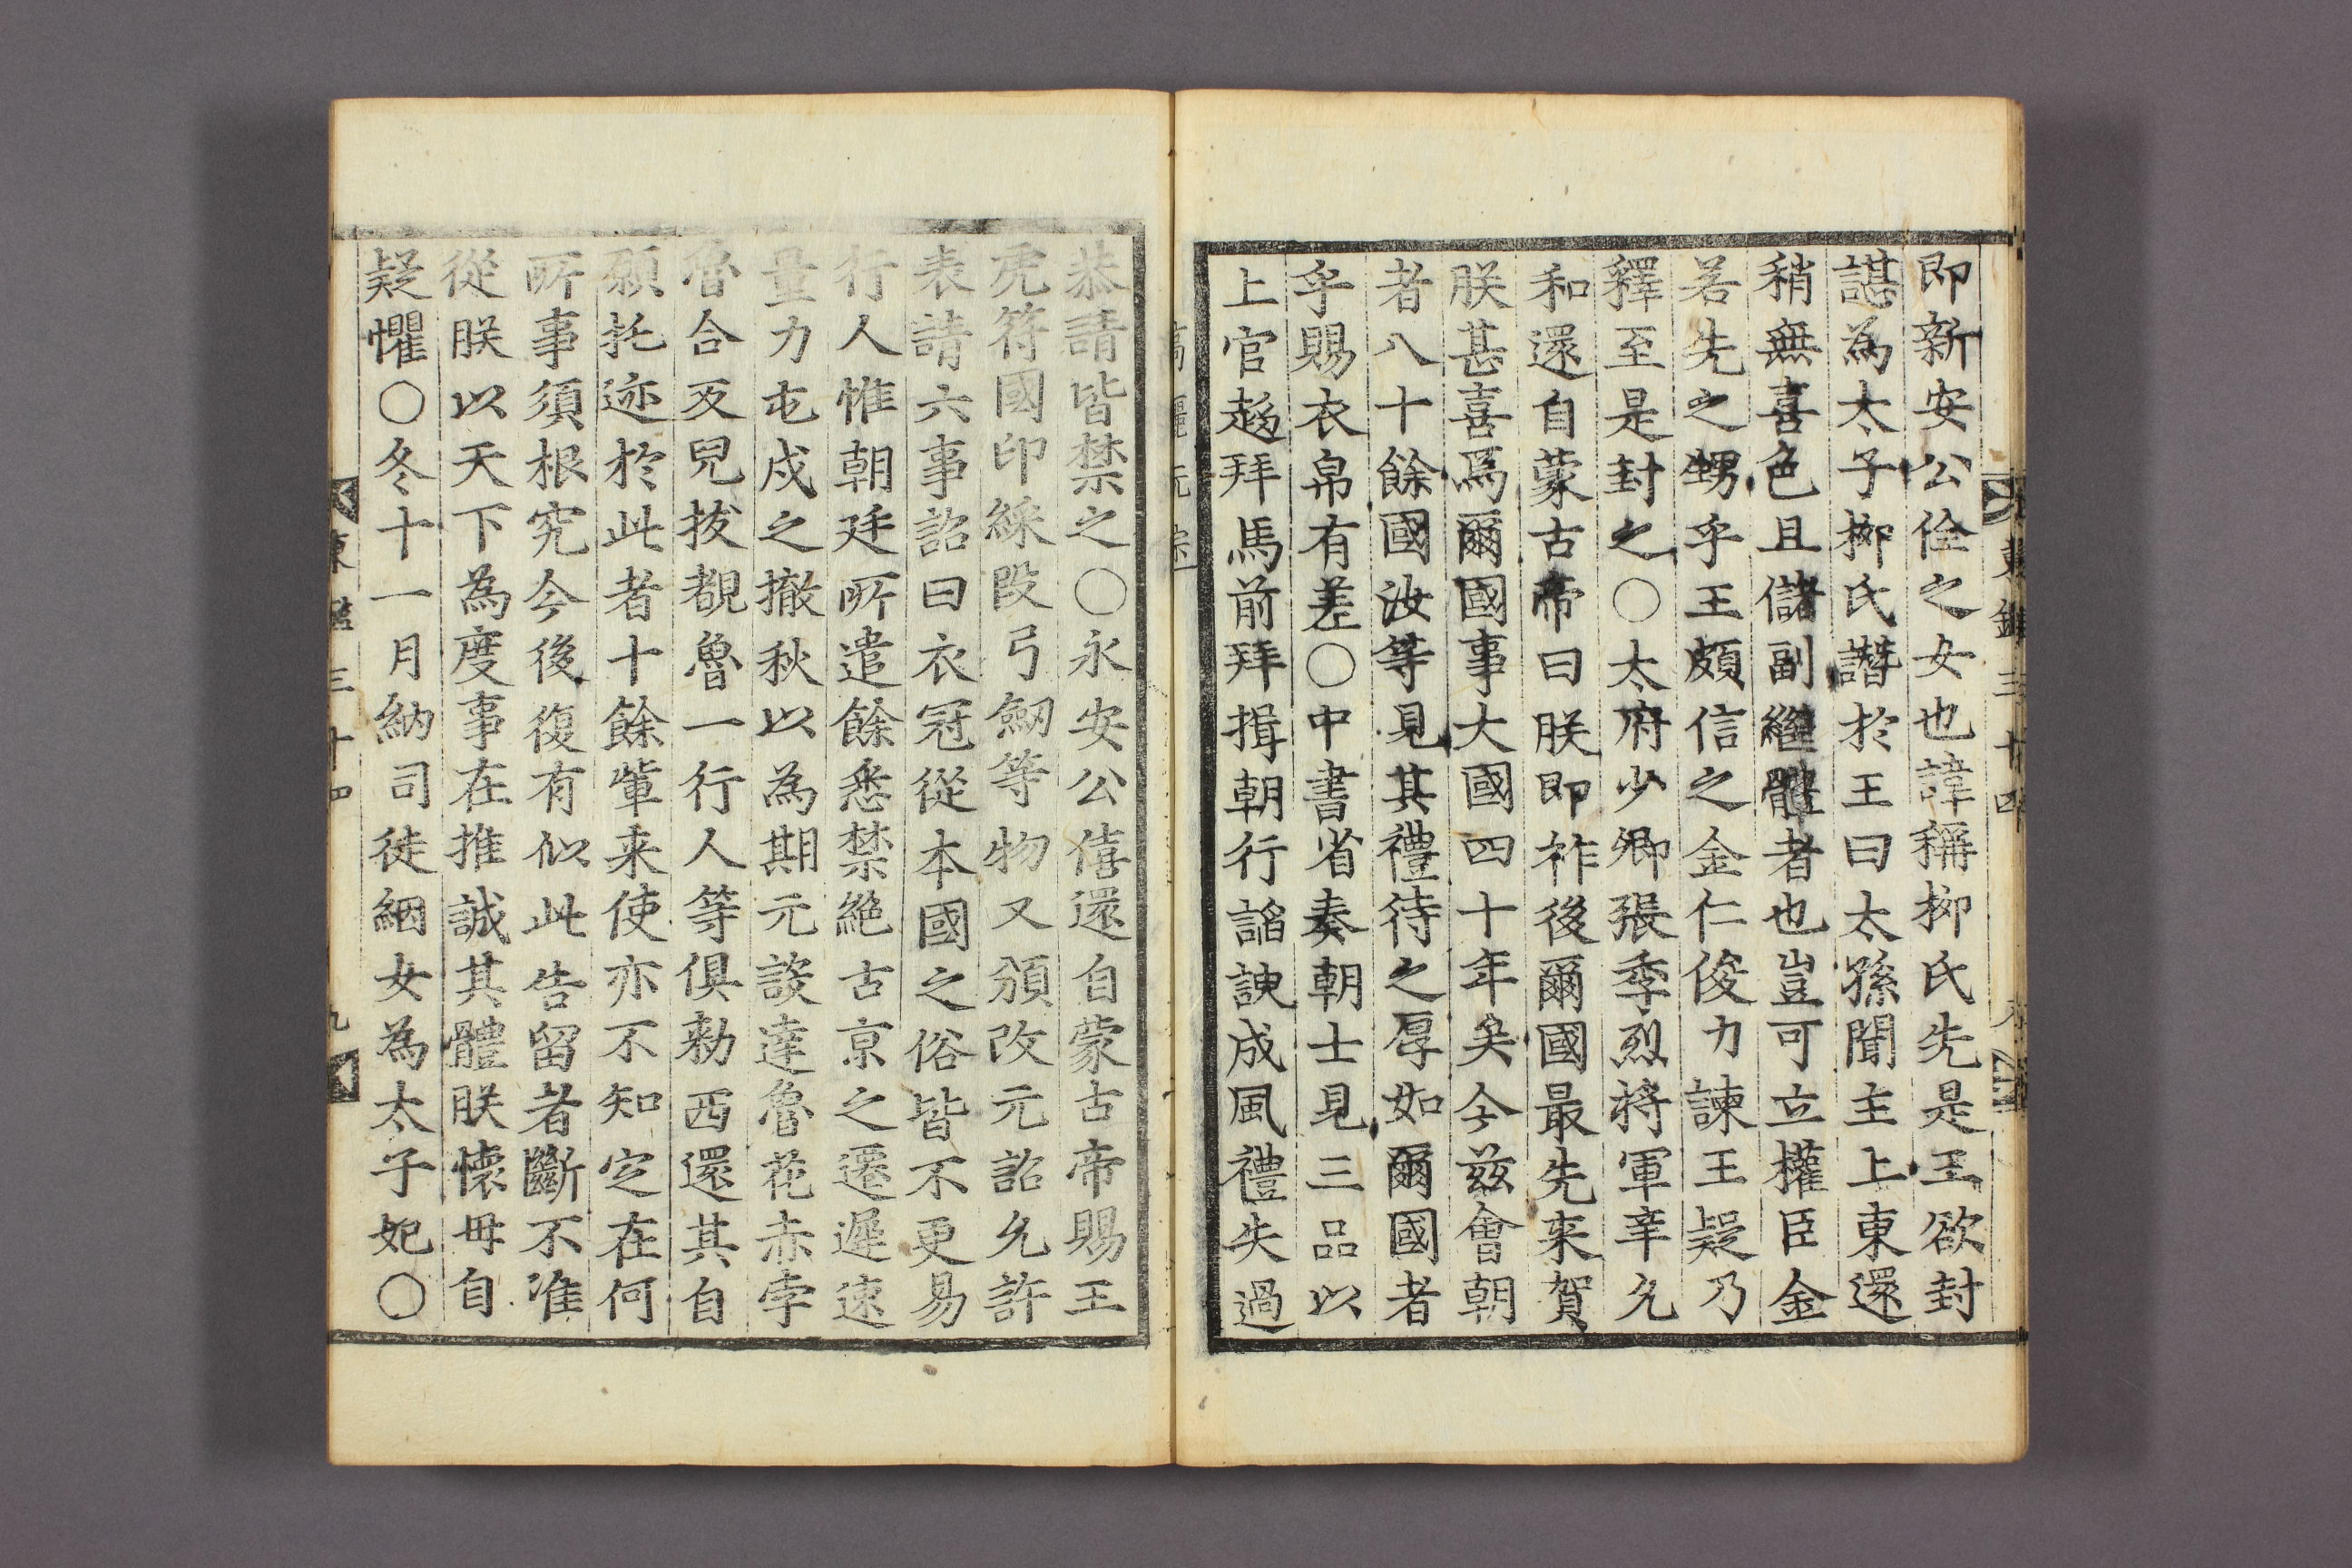 即新安公佺之女也諱稱栁氏先是王欲封
諶為太子栁氏譖於王曰太孫聞主上東還
稍無喜色且儲副繼體者也豈可立權臣金
若先之甥乎王頗信之金仁俊力諫王疑乃
釋至是封之○太府少卿張季烈將軍辛允
和還自蒙古帝曰朕即祚後爾國最先来賀
朕甚喜焉爾國事大國四十年矣今兹會朝
者八十餘國汝等見其禮待之厚如爾國者
乎賜衣帛有差○中書省奏朝士見三品以
上官趍拜馬前拜揖朝行謟諛成風禮失過
高麗元宗一
恭請皆禁之○永安公僖還自蒙古帝賜王
虎符國印綵段弓劒等物又頒改元詔允許
表請六事詔曰衣冠從本國之俗皆不更易
行人惟朝廷所遣餘悉禁絶古京之遷遲速
量力屯戍之撤秋以為期元設達魯花赤孛
魯合反兒拔覩魯一行人等俱勑西還其自
願托迹於此者十餘軰来使亦不知定在何
所事須根究今後復有似此告留者斷不准
從朕以天下為度事在推誠其體朕懷毋自
疑懼○冬十一月納司徒絪女為太子妃○
東鑑三十四
九